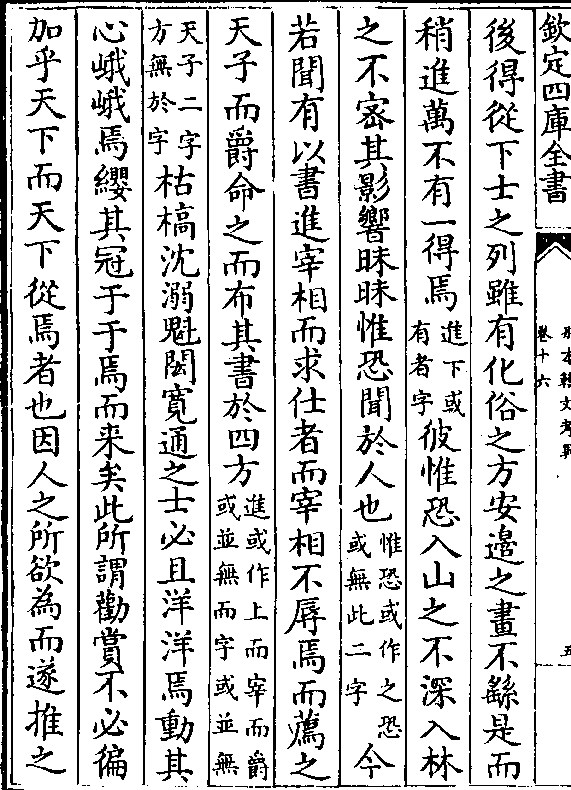 欽定四庫全書
別本韓文考異
卷十六
五
後得從下士之列雖有化俗之方安邊之畫不繇是而
稍進萬不有一得焉進下或有者字彼惟恐入山之不深入林
之不密其影響昧昧惟恐聞於人也惟恐或作之恐或無此二字今
若聞有以書進宰相而求仕者而宰相不辱焉而薦之
天子而爵命之而布其書於四方進或作上而宰而爵或並無而字或並無
天子二字方無於字枯槁沈溺魁閎寛通之士必且洋洋焉動其
心峨峨焉纓其冠于于焉而来矣此所謂勸賞不必徧
加乎天下而天下從焉者也因人之所欲為而遂推之